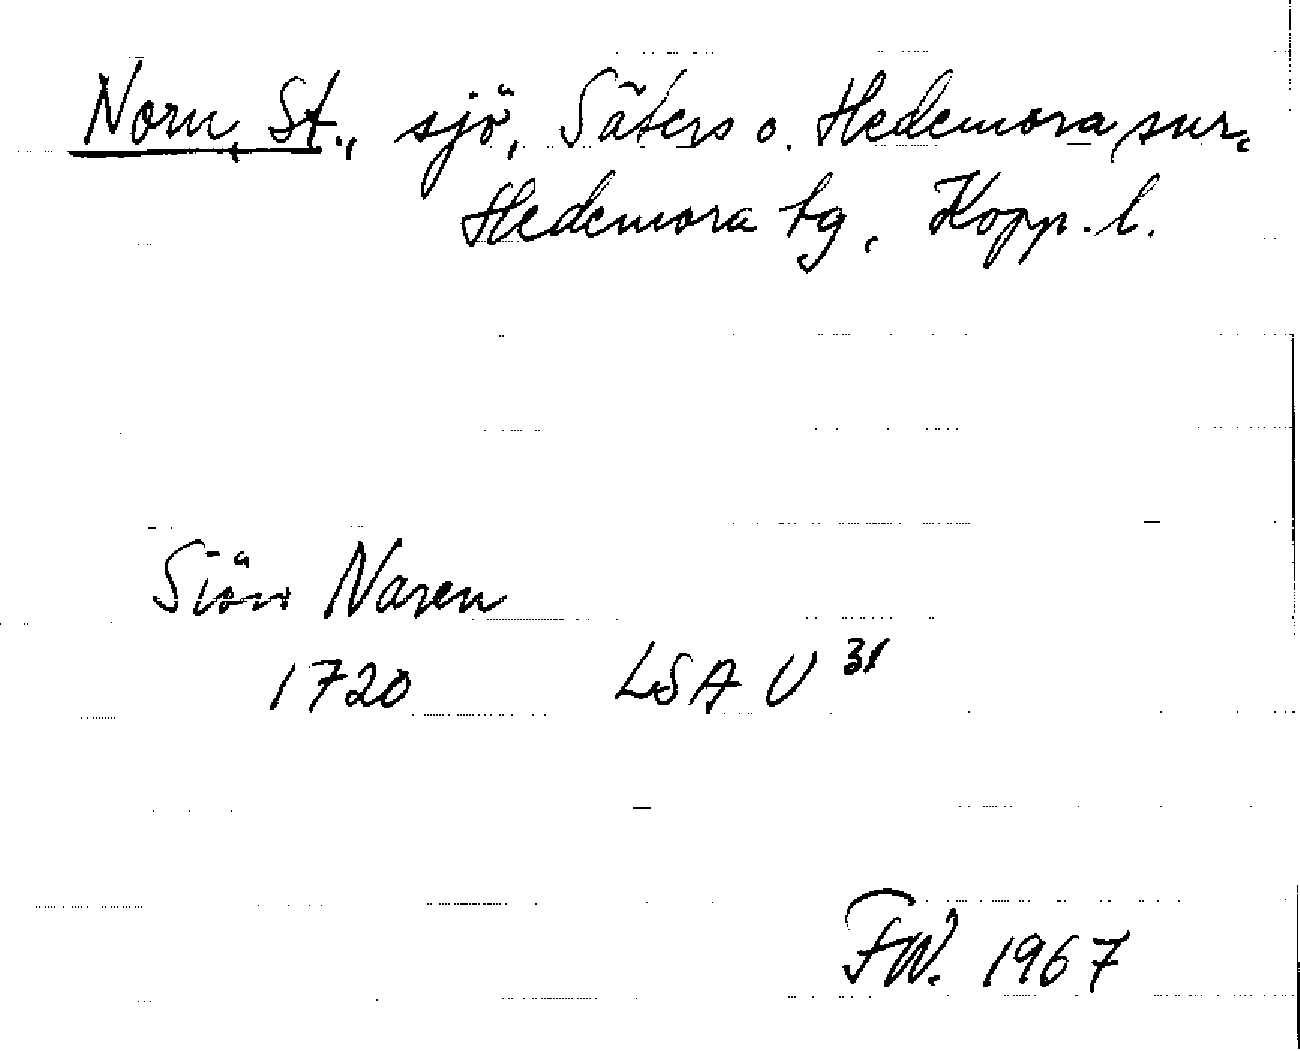 Norn, St., sjö, Säters o. Hedemora snr,
Hedemora tg, Kopp. l.
Siön Naren
1720 LSA U 31
FW. 1967